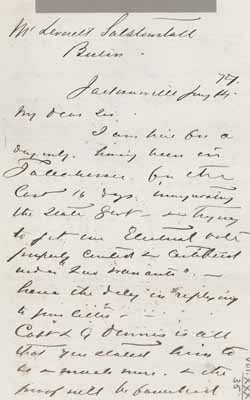 Mr Leverett Saltonstall
Boston.
Jacksonville Jany 14. 77
My dear Sir.
I am here for a
day only. having been in
Tallahassee for the
last 16 days. inaugurating
the State Govt & in trying
to get our Electoral vote
properly counted & certified
under "Quo warranto". —
hence the delay in replying
to your letter. —
is still
that you stated him to
be & much more. & the
proof will be furnished